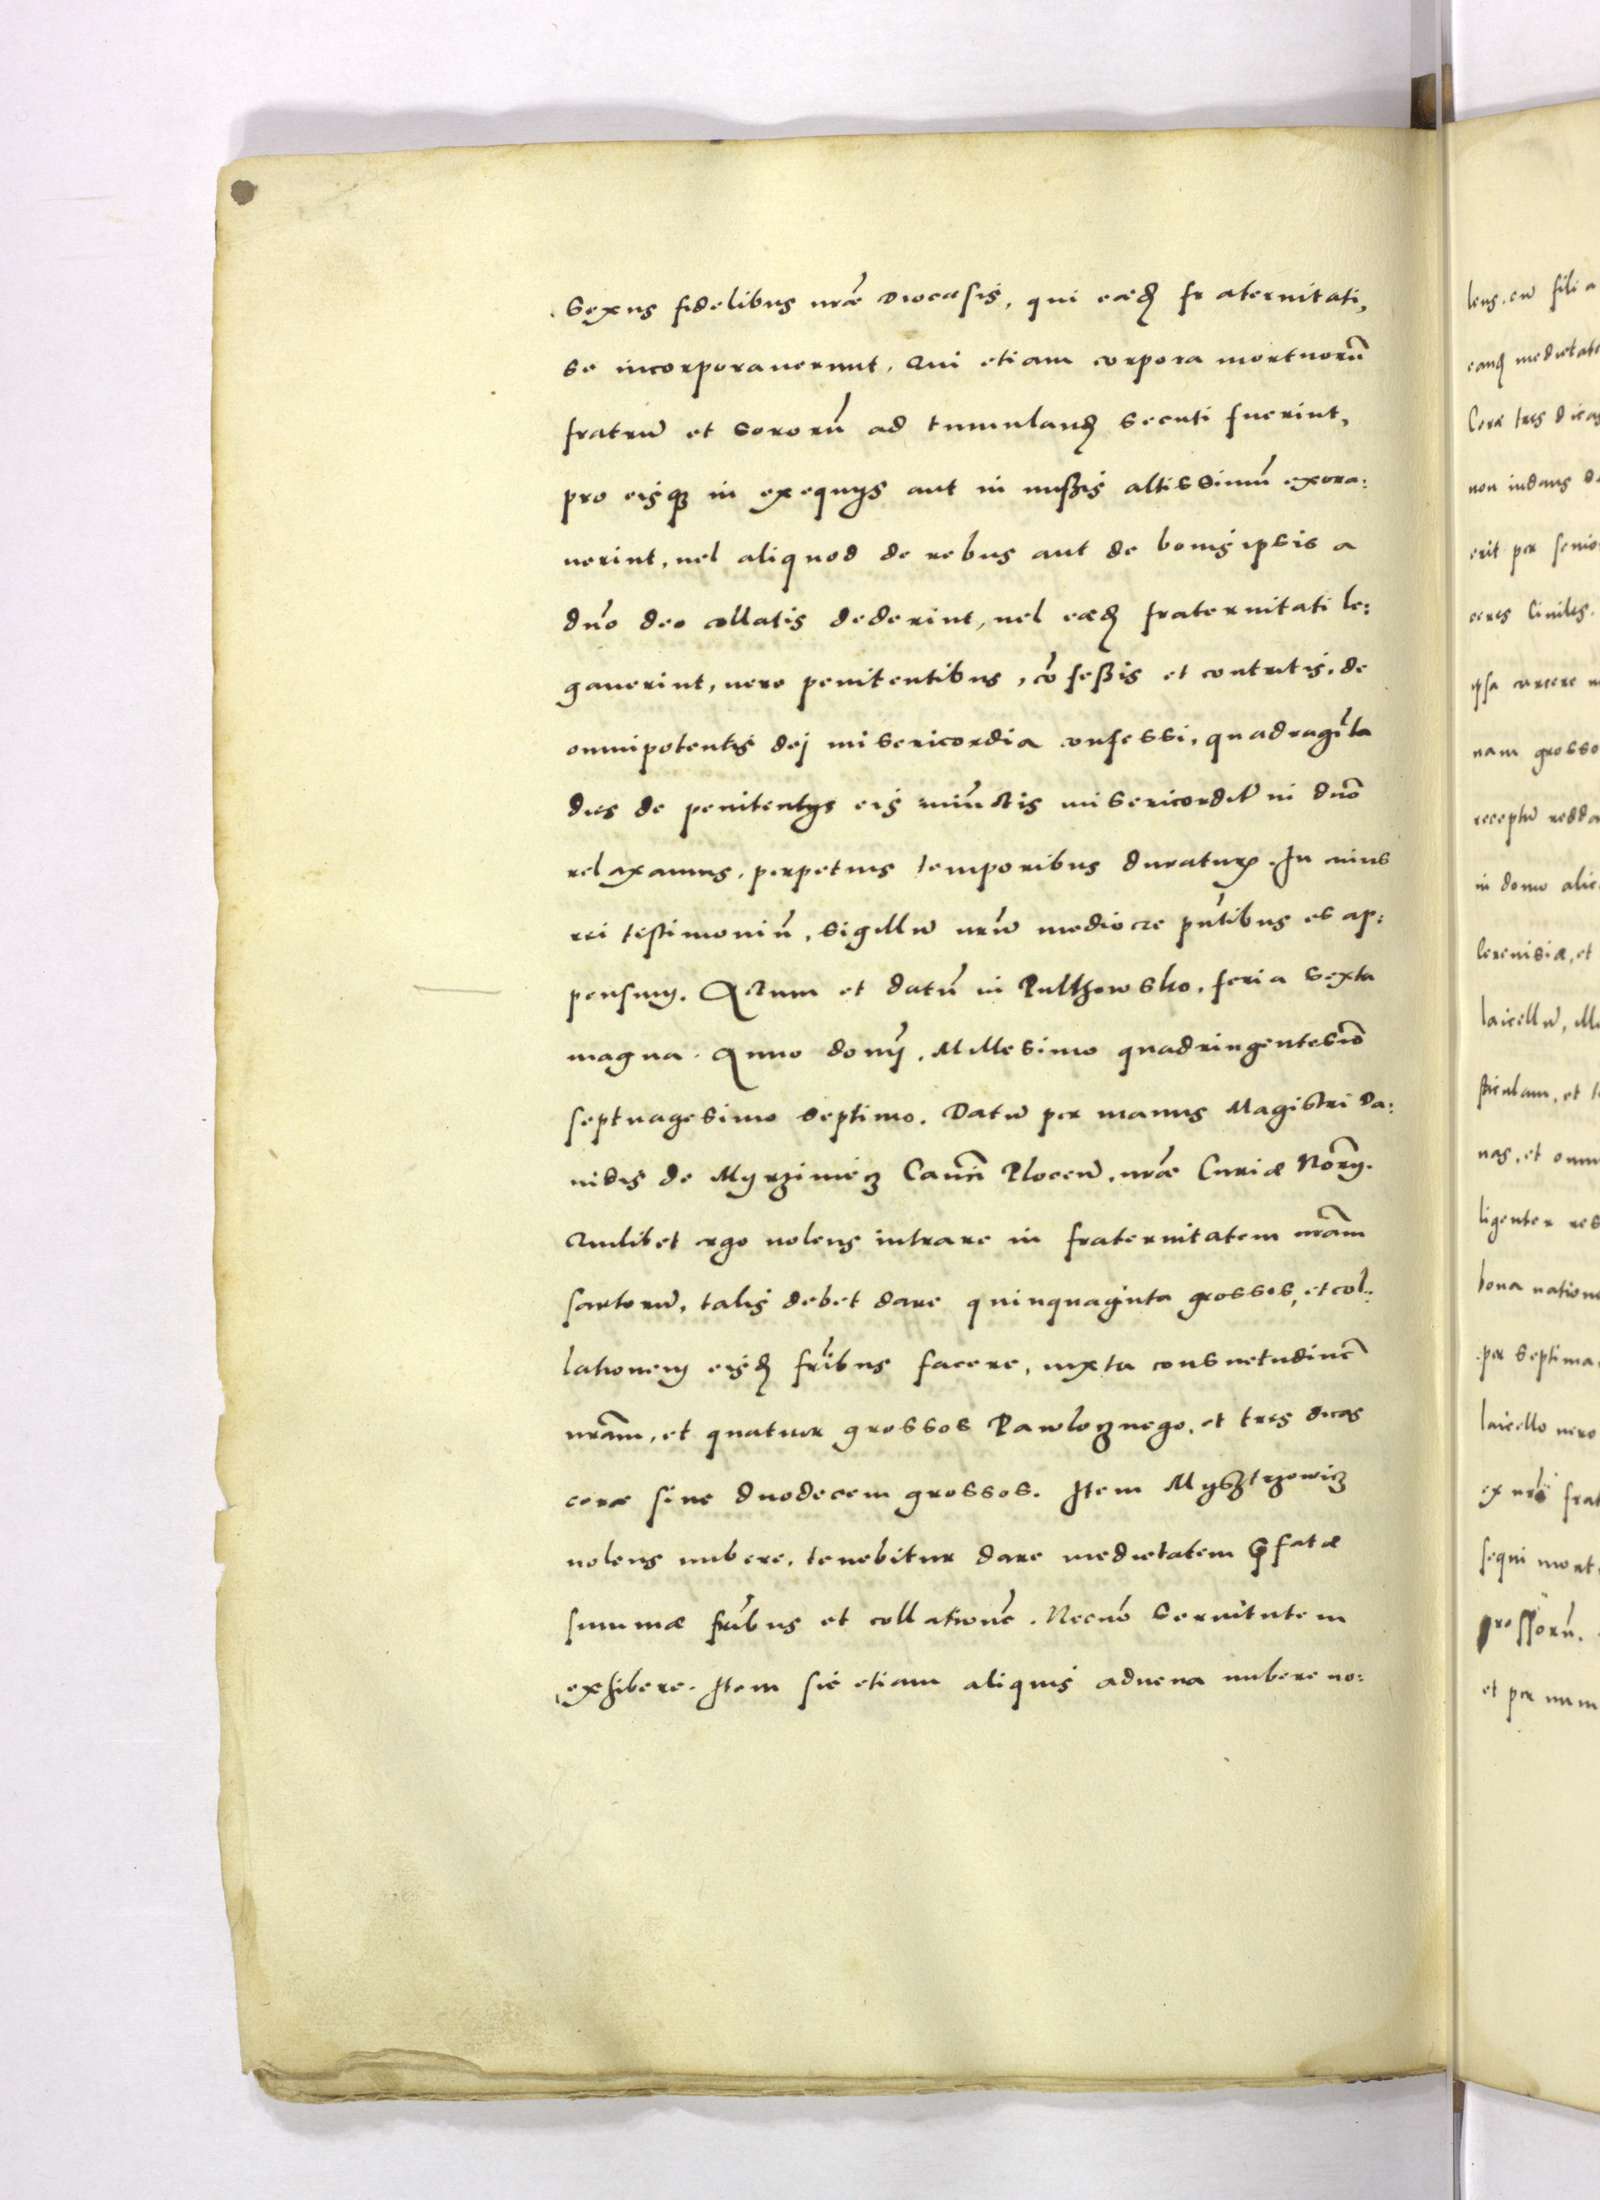 sexus fidelibus nr̃æ Diocæsis, qui eædꝫ fraternitati,
se incorporauerunt. Qui etiam corpora mortuorũ
fratrũ et sororũ ad tumulandꝫ secuti fuerint,
pro eisqꝫ in exequijs aut in missis altissimũ exora:
uerint, uel aliquod de rebus aut de bonis ipsis a
dño deo collatis dederint, uel eædꝫ fraternitati le:
gauerint, uere penitentibus, cõfessis et contritis. de
omnipotentis dej misericordia confessi, quadragĩta
dies de penitentijs eis iniũctis misericorditr̃ in dño
relaxamus, perpetuis temporibus duraturꝭ. In cuius
rei testimoniũ, sigillũ nr̃ũ mediocre pñtibus es ap:
pensum. Actum et datũ in Pulthowsko, feria sexta
magna. Anno domĩ. Millesimo quadringentesiõ
septuagesimo septimo. Datũ per manus Magistri Da:
nidis de Myrziniecz Canci Plocen̄. nr̃æ Curiæ Norĩj.
Quilibet ergo uolens intrare in fraternitatem nr̃am
sartorũ, talis debet dare quinquaginta grossos, et col:
lationem eisdꝫ fr̃ibus facere, iuxta consuetudinẽ
nr̃am, et quatuor grossos Pawlocznego, et tres dicas
ceræ siue duodecem grossos. Item Mysztrzowicz
uolens nubere, tenebitur dare medietatem p̃fatæ
summæ fr̃ibus et collationẽ. Necnõ seruitutem
exhibere. Item sic etiam aliquis aduena nubere uo:
lens, cũ filia
eandꝫ medietate
Ceræ tres dicas
non iudaus
erit per senio
ceres Ciuiles.
ipsa carcere
nam grosso
receptũ redda
in domo alic
Cereuisiæ, et
laicellũ, ille
ticulam, et
nas, et omn
ligenter res
bona natione
per septima
laicello uero
frat
sequi mort
grossorũ.
et per num